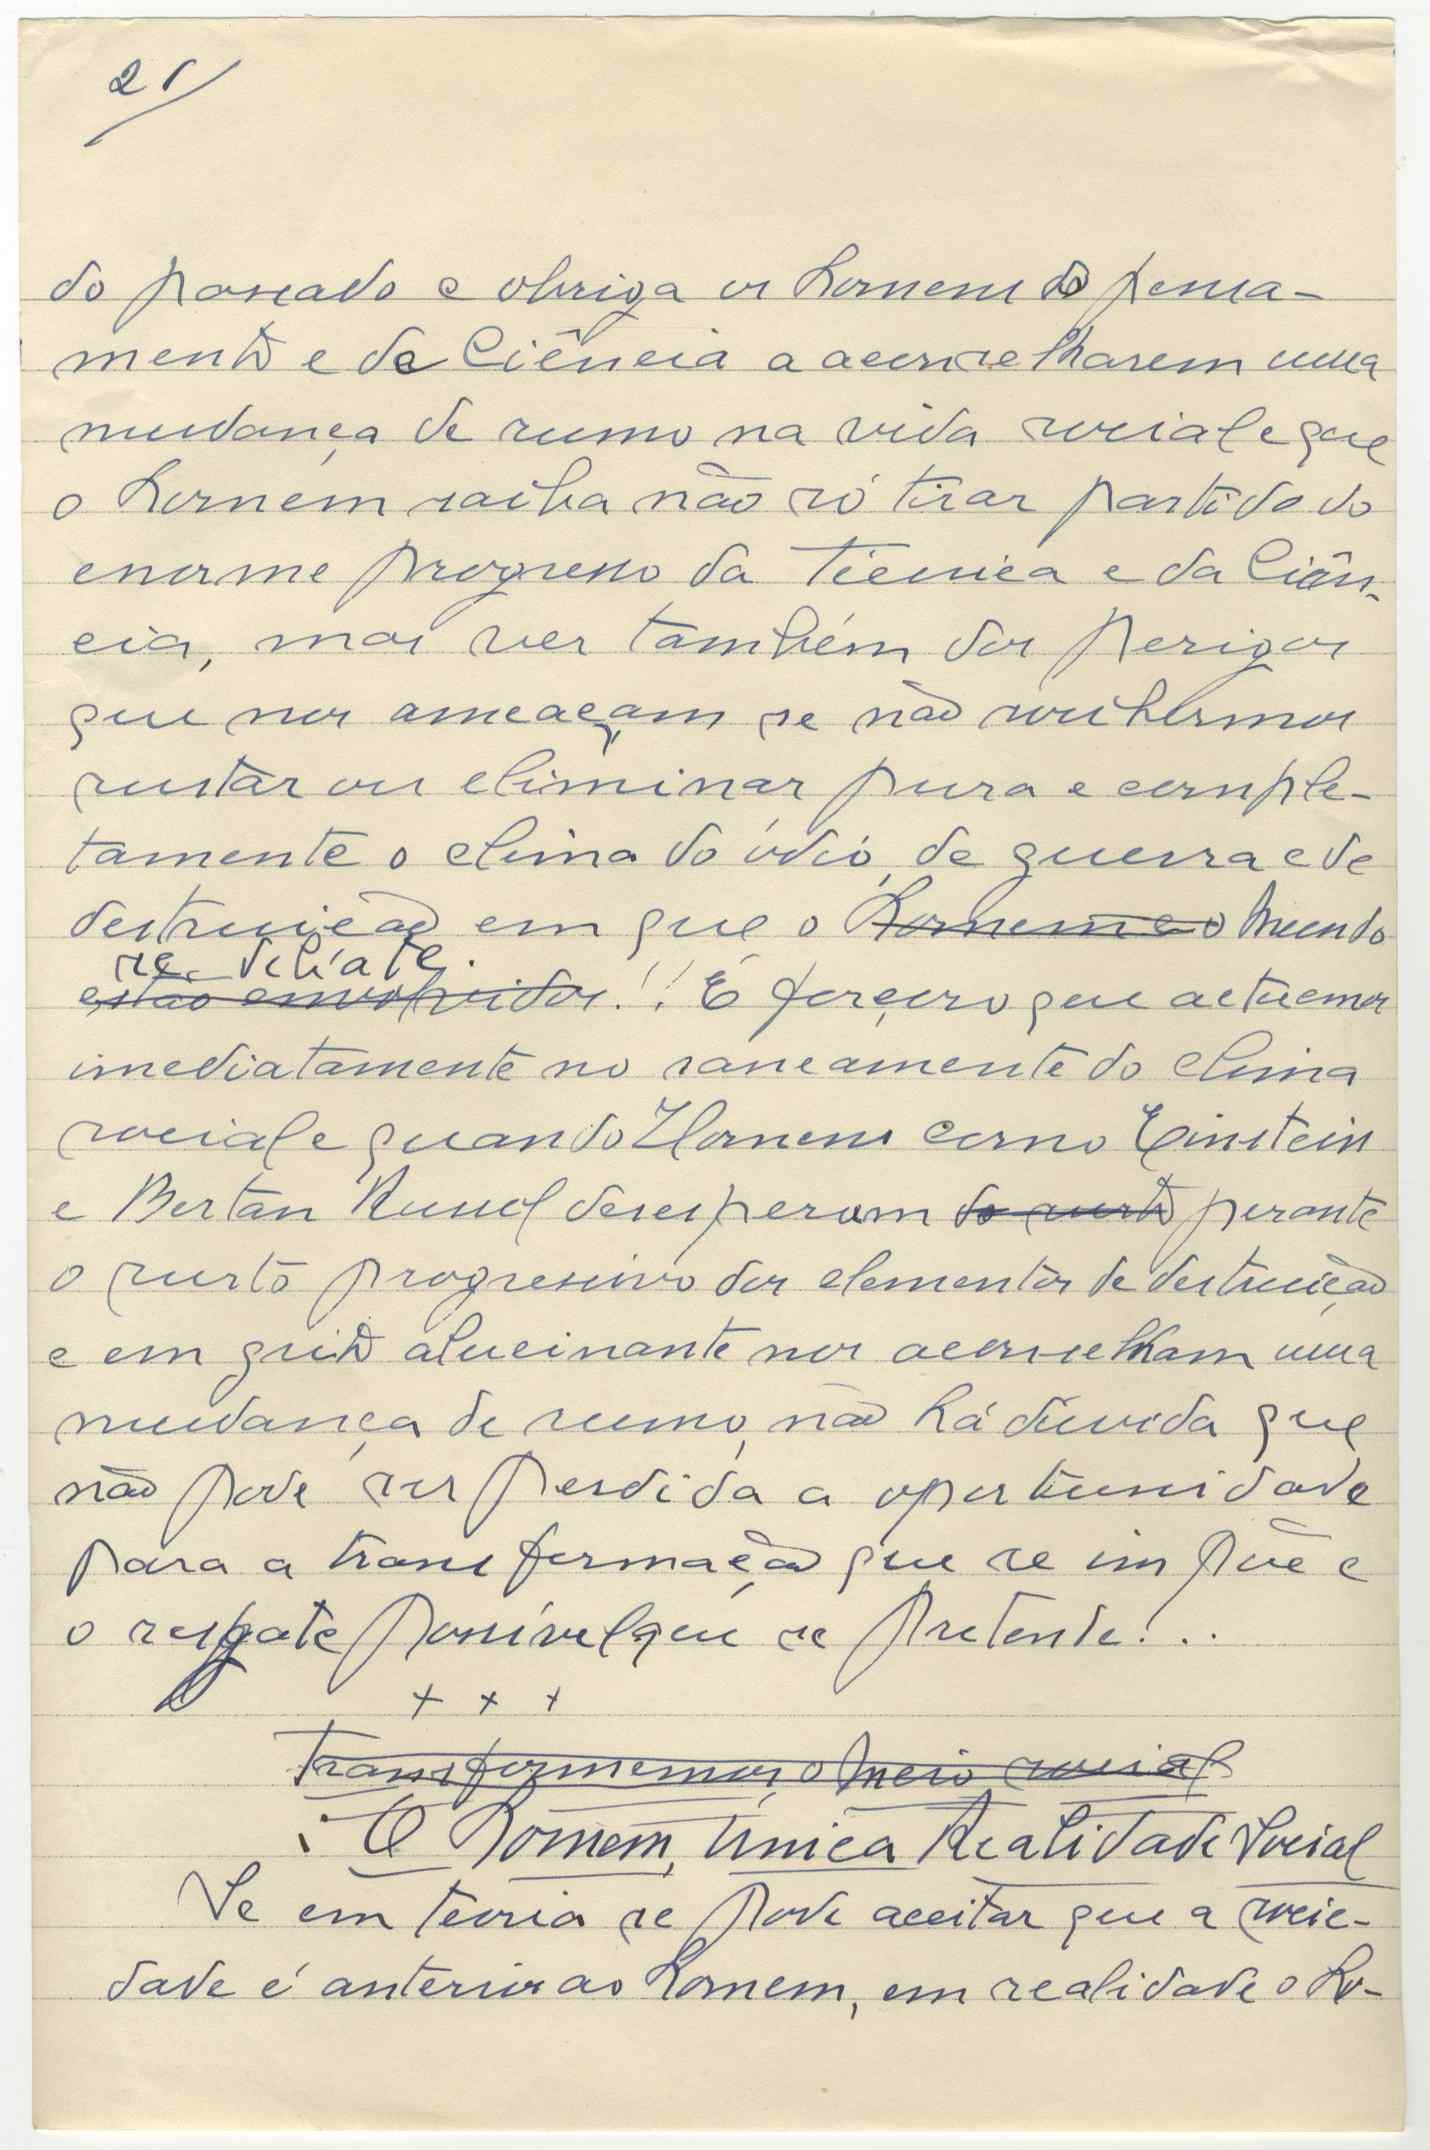 21/
do passado e obriga os homens do pensa-
mento e da Ciência a aconselharem uma
mudança de rumo na vida social e que
o homem saiba não só tirar partido do
enorme progresso da Técnica e da Ciên-
cia, mas ver também dos perigos
que nos ameaçam se não soubermos
sustar ou eliminar pura e comple-
tamente o clima do ódio, de guerra e de
destruição em que o homem e o Mundo
se debate.
estão envolvidos!! É forçoso que actuemos
imediatamente no saneamente do clima
social e quando Homens como Einstein
e Bertan Russel desesperam do surto perante
o surto progressivo dos elementos de destruição
e em grito alucinante nos aconselham uma
mudança de rumo, não há dúvida que
não pode ser perdida a oportunidade
para a transformação que se impõe e
o resgate possível que se pretende...
+ + +
Transformemos o meio social
O Homem, única Realidade Social
Se em teoria se pode aceitar que a socie-
dade é anterior ao homem, em realidade o ho-